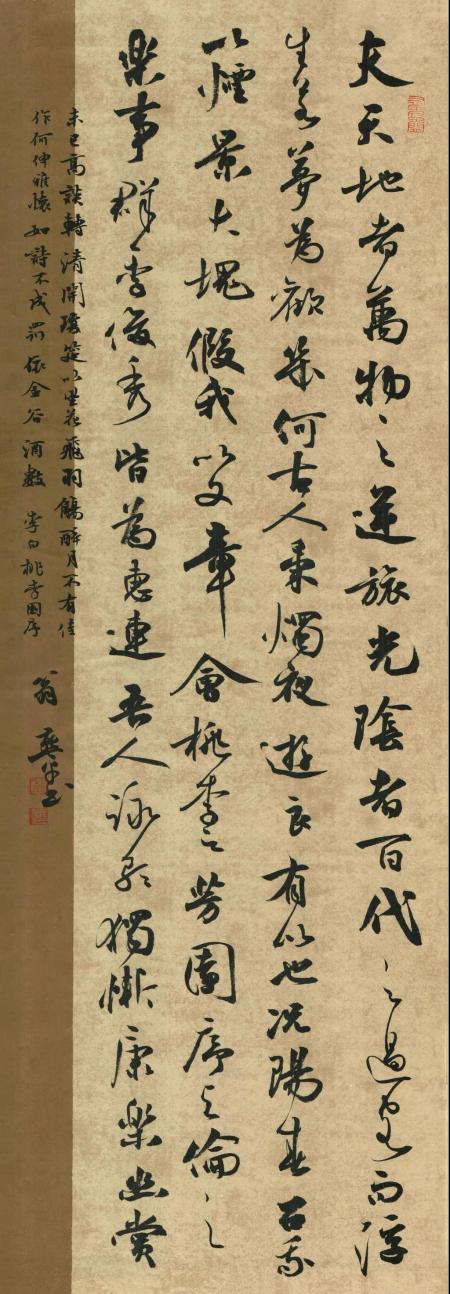 夫天地者萬物之逆旅光陰者百代之過客而浮
生若夢為歡幾何古人秉燭夜遊良有以也況陽春召我
以煙景大塊假我以文章會桃李之芳園序天倫之
樂事群季俊秀皆為惠連吾人詠歌獨慚康樂幽賞
未已高談轉清開瓊筵以坐花飛羽觴醉月不有佳
作何伸雅懷如詩不成罰依金谷酒數 李白桃李園序
翁 書